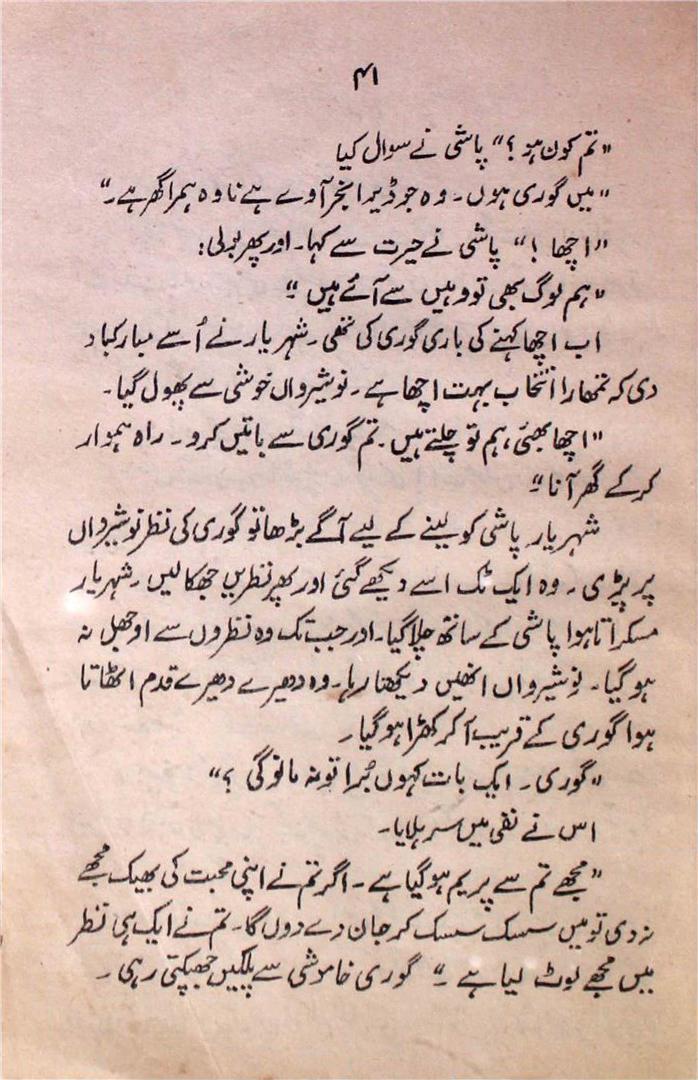 ۴۱
"تم کون ہو؟" پاشی نے سوال کیا
"میں گوری ہوں۔ وہ جو ڈیرا نجر آوے ہے نا وہ ہمرا گھر ہے۔"
"اچھا!" پاشی نے حیرت سے کہا۔ اور پھر بولی:
"ہم لوگ بھی تو وہیں سے آئے ہیں۔"
اب اچھا کہنے کی باری گوری کی تھی۔ شہریار نے اُسے مبارکباد
دی کہ تمھارا انتخاب بہت اچھا ہے۔ نوشیرواں خوشی سے پھول گیا۔
"اچھا بھئی، ہم تو چلتے ہیں۔ تم گوری سے باتیں کرو۔ راہ ہموار
کر کے گھر آنا۔"
شہریار پاشی کو لینے کے لیے آگے بڑھا تو گوری کی نظر نوشیرواں
پر پڑی۔ وہ ایک ٹک اسے دیکھے گئی اور پھر نظریں جھکا لیں۔ شہریار
مسکراتا ہوا پاشی کے ساتھ چلا گیا۔ اور جب تک وہ نظروں سے اوجھل نہ
ہو گیا۔ نوشیرواں انھیں دیکھتا رہا۔ وہ دھیرے دھیرے قدم اٹھاتا
ہوا گوری کے قریب آ کر کھڑا ہو گیا۔
"گوری۔ ایک بات کہوں بُرا تو نہ مانو گی؟"
اس نے نفی میں سر ہلایا۔
"مجھے تم سے پریم ہو گیا ہے۔ اگر تم نے اپنی محبت کی بھیک مجھے
نہ دی تو میں سسک سسک کر جان دے دوں گا۔ تم نے ایک ہی نظر
میں مجھے لوٹ لیا ہے۔" گوری خاموشی سے پلکیں جھپکتی رہی۔